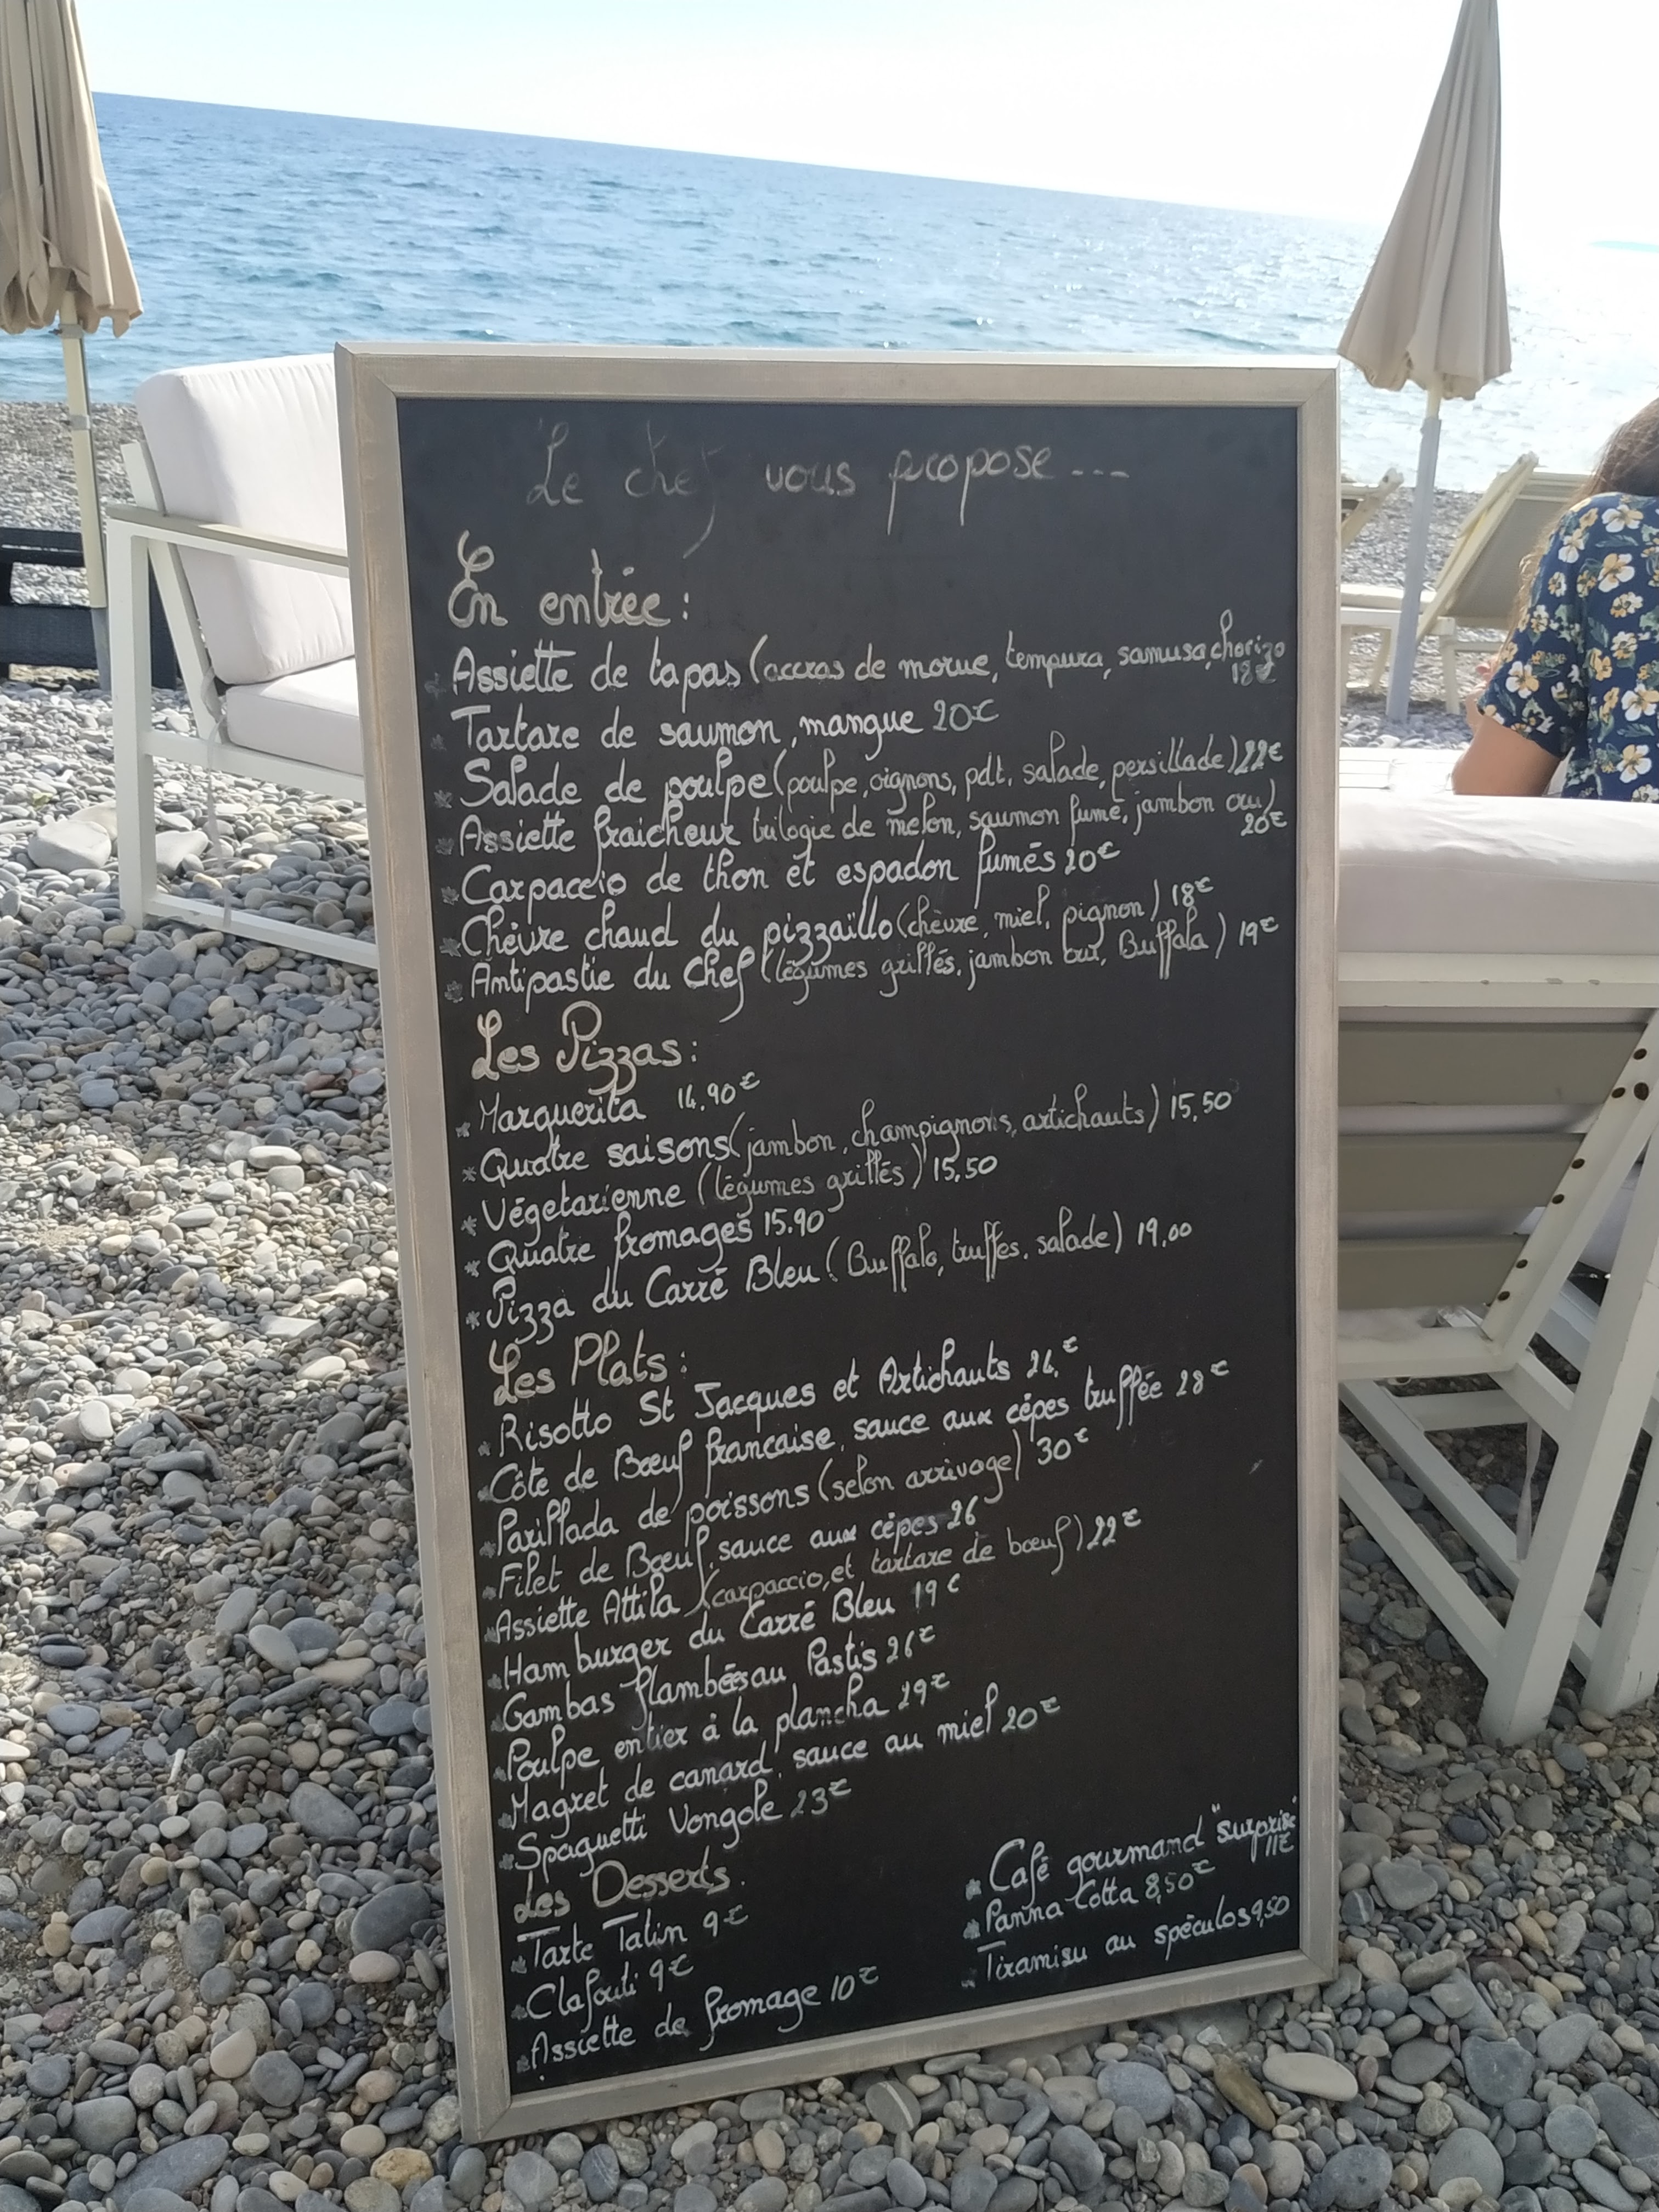 Le chef vous propose ---
En entrée :
Assiette de tapas (accras de morue, tempura, samusa, chorizo
18€
Tartare de saumon, mangue 20€
Salade de poulpe (poulpe, oignons, pdt, salade, persillade) 22€
Assiette fraicheur trilogie de melon, saumon fumé, jambon cru)
20€
Carpaccio de thon et espadon fumés 20€
Chèvre chaud du pizzaïllo (chèvre, miel, pignon) 18€
Antipastie du Chef (légumes grillés, jambon cru, Buffala) 19€
Les Pizzas :
Marguerita 14.90€
Quatre saisons (jambon, champignons, artichauts) 15,50
Végetarienne (légumes grillés) 15,50
Quatre fromages 15.90
Pizza du Carré Bleu (Buffala, truffes, salade) 19,00
Les Plats :
Risotto St Jacques et Artichauts 26,€
Côte de Bœuf francaise, sauce aux cépes truffée 28€
Parillada de poissons (selon arrivage) 30€
Filet de Bœuf, sauce aux cépes 26
Assiette Attila (carpaccio, et tartare de bœuf) 22€
Hamburger du Carré Bleu 19€
Gambas flambées au Pastis 26€
Poulpe entier à la plancha 29€
Magret de canard, sauce au miel 20€
Spaguetti Vongole 23€
Les Desserts.
Tarte Tatin 9€
Clafouti 9€
Assiette de fromage 10€
Café gourmand "surprise"
11€
Panna Cotta 8,50€
Tiramisu au spéculos 9,50